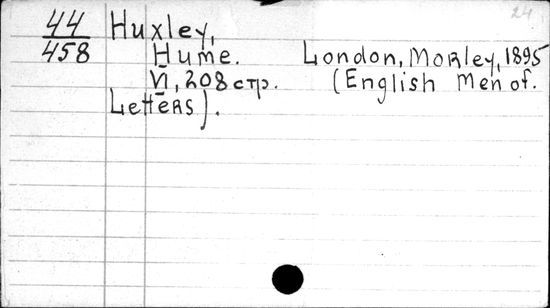 24
44 Huxley,
458 Hume. London, Morley, 1895
VI, 208 стр. (English Men of.
Letters).